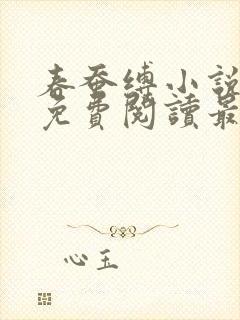 春蚕缚小說
免費閱讀最
心玉